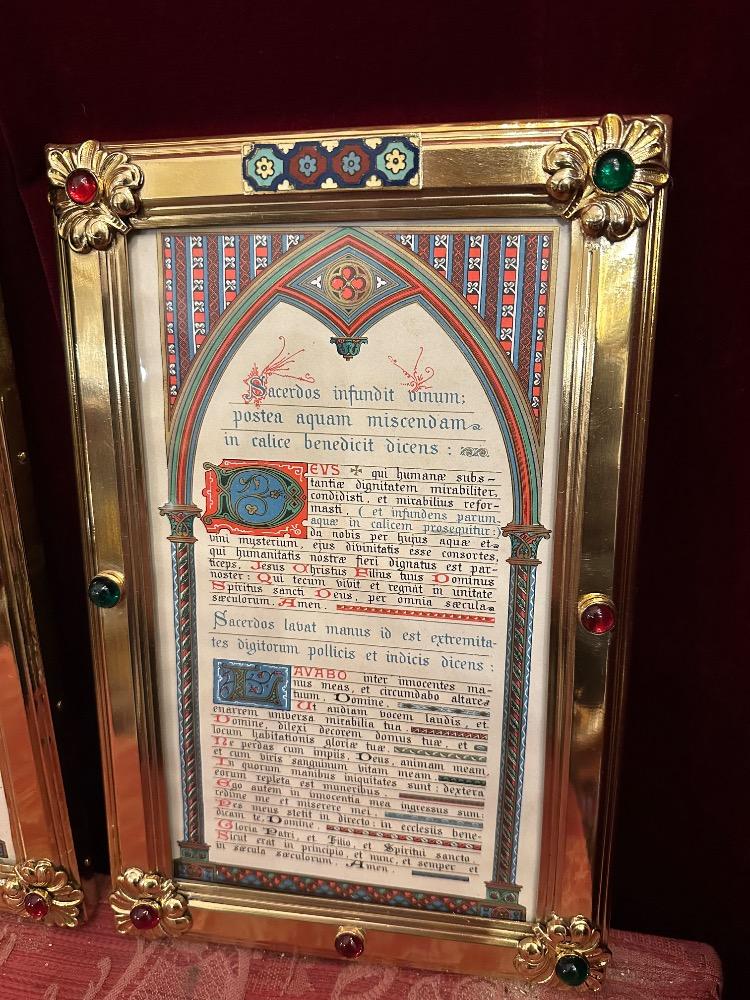 Sacerdos infundit vinum;
postea aquam miscendam
in calice benedicit dicens :
DEVS ✠ qui humanæ subs-
tantiæ dignitatem mirabiliter,
condidisti, et mirabilius refor-
masti, ( et infundens parum
aquæ in calicem prosequitur:)
da nobis per hujus aquæ et
vini mysterium, ejus divinitatis esse consortes,
qui humanitatis nostræ fieri dignatus est par-
ticeps, Jesus Christus Filius tuus Dominus
noster : Qui tecum vivit et regnat in unitate
Spiritus sancti Deus, per omnia sæcula
sæculorum. Amen.
Sacerdos lavat manus id est extremita-
tes digitorum pollicis et indicis dicens :
LAVABO inter innocentes ma-
nus meas, et circumdabo altare
tuum Domine.
Ut audiam vocem laudis, et
enarrem universa mirabilia tua.
Domine, dilexi decorem domus tuæ, et
locum habitationis gloriæ tuæ.
Ne perdas cum impiis, Deus, animam meam,
et cum viris sanguinum vitam meam.
In quorum manibus iniquitates sunt : dextera
eorum repleta est muneribus.
Ego autem in innocentia mea ingressus sum:
redime me et miserere mei.
Pes meus stetit in directo : in ecclesiis bene-
dicam te, Domine.
Gloria Patri, et Filio, et Spiritui sancto.
Sicut erat in principio, et nunc, et semper et
in sæcula sæculorum. Amen.